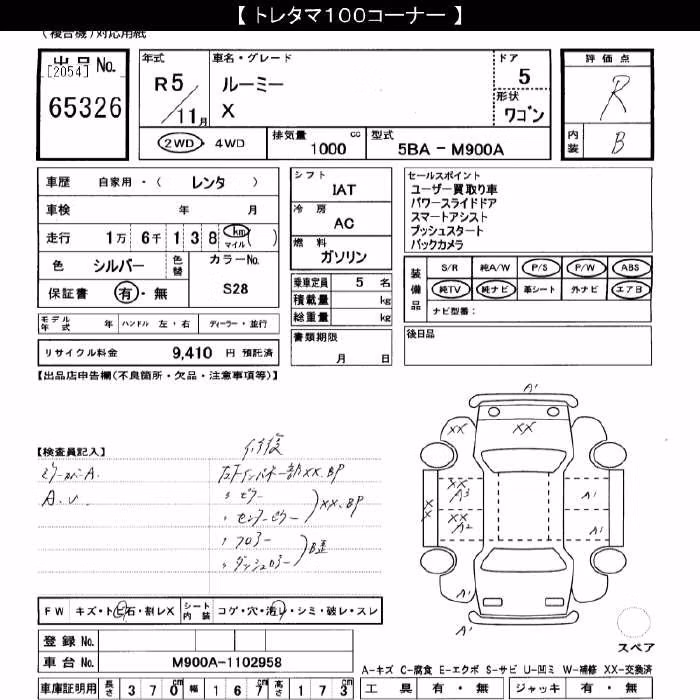 【 トレタマ100コーナー 】
(複合機)対応用紙
出品 No.
[2054]
65326
年式
R5 / 11 月
車名・グレード
ルーミー
X
ドア
5
形状
ワゴン
評価点
R
内装
B
2WD・4WD
排気量 cc
1000
型式
5BA - M900A
車歴 自家用・( レンタ )
車検 年 月
走行 1万 6千 1 3 8 km マイル ( )
色 シルバー
色替
カラーNo.
S28
保証書 有・無
シフト
IAT
冷房
AC
燃料
ガソリン
乗車定員 5 名
積載量 kg
総重量 kg
セールスポイント
ユーザー買取り車
パワースライドドア
スマートアシスト
プッシュスタート
バックカメラ
装備品
S/R 純A/W P/S P/W ABS
純TV 純ナビ 革シート 外ナビ エアB
ナビ型番:
モデル年式 年 ハンドル 左・右 ディーラー・並行
リサイクル料金 9,410 円 預託済
書類期限
月 日
後日品
【出品店申告欄(不良箇所・欠品・注意事項等)】
【検査員記入】
修復
ミラーカバーA.
A.U.
XX.BP
〃 ピラー
〃 センターピラー
XX.BP
〃 フロアー
〃 ダッシュロアー
B歪
A1
XX XX
XX
A3
XX
A2
XX
A1
A1
A1
A1
スペア
FW キズ・トビ石・割レX
シート内装 コゲ・穴・汚レ・シミ・破レ・スレ
登録 No.
車台 No. M900A-1102958
車庫証明用 長さ 370 cm 幅 167 cm 高さ 173 cm
A-キズ C-腐食 E-エクボ S-サビ U-凹ミ W-補修 XX-交換済
工具 有・無 ジャッキ 有・無